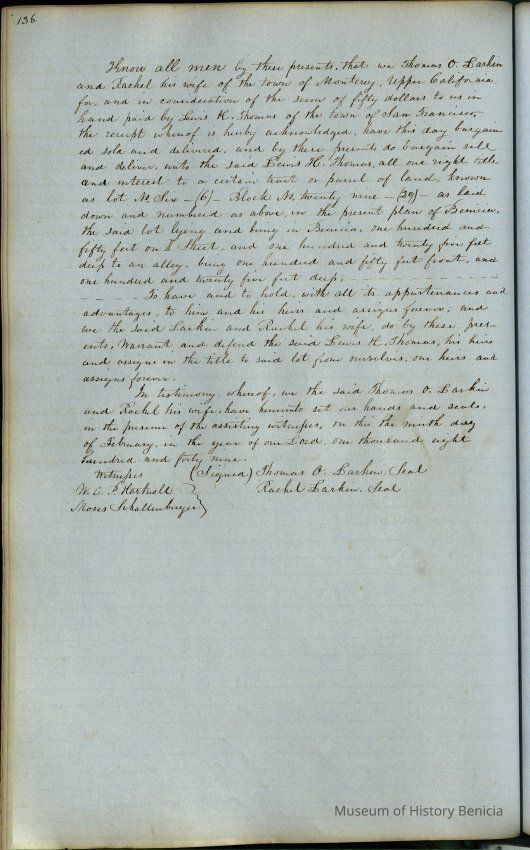 136.
Know all men by these presents, that we Thomas O. Larkin
and Rachel his wife of the town of Monterey, Upper California
for, and in consideration of the sum of fifty dollars to us in
hand paid by Lewis H. Thomas of the town of San Francisco,
the receipt whereof is hereby acknowledged, have this day bargain
ed sold and delivered, and by these presents do bargain sell
and deliver, unto the said Lewis H. Thomas, all our right title
and interest to a certain tract or parcel of land, known
as lot No. Six -(6)- Block No. twenty nine -(29)- as laid
down and numbered as above, in the present plan of Benicia,
the said lot lying and being in Benicia, one hundred and
fifty feet on Street, and one hundred and twenty five feet
deep to an alley, being one hundred and fifty feet front, and
one hundred and twenty five feet deep.
To have and to hold, with all its appurtenances and
advantages, to him and his heirs and assigns forever; and
we the said Larkin and Rachel his wife, do by these pres-
ents, Warrant and defend the said Lewis H. Thomas, his heirs
and assigns in the title to said lot from ourselves, our heirs and
assigns forever.
In testimony whereof, we the said Thomas O. Larkin
and Rachel his wife, have hereunto set our hands and seals,
in the presence of the assisting witnesses, on this the ninth day
of February, in the year of our Lord, one thousand eight
hundred and forty nine.
Witnesses (Signed) Thomas O. Larkin. Seal
W. E. P. Hartnell } Rachel Larkin. Seal
Moses Schallenberger }
Museum of History Benicia